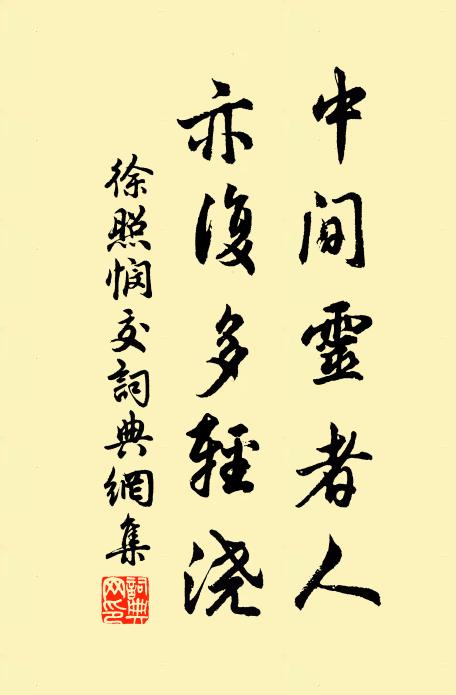 中间靈者人
亦復多輕浇
徐照悯交詞典網集
詞典网印